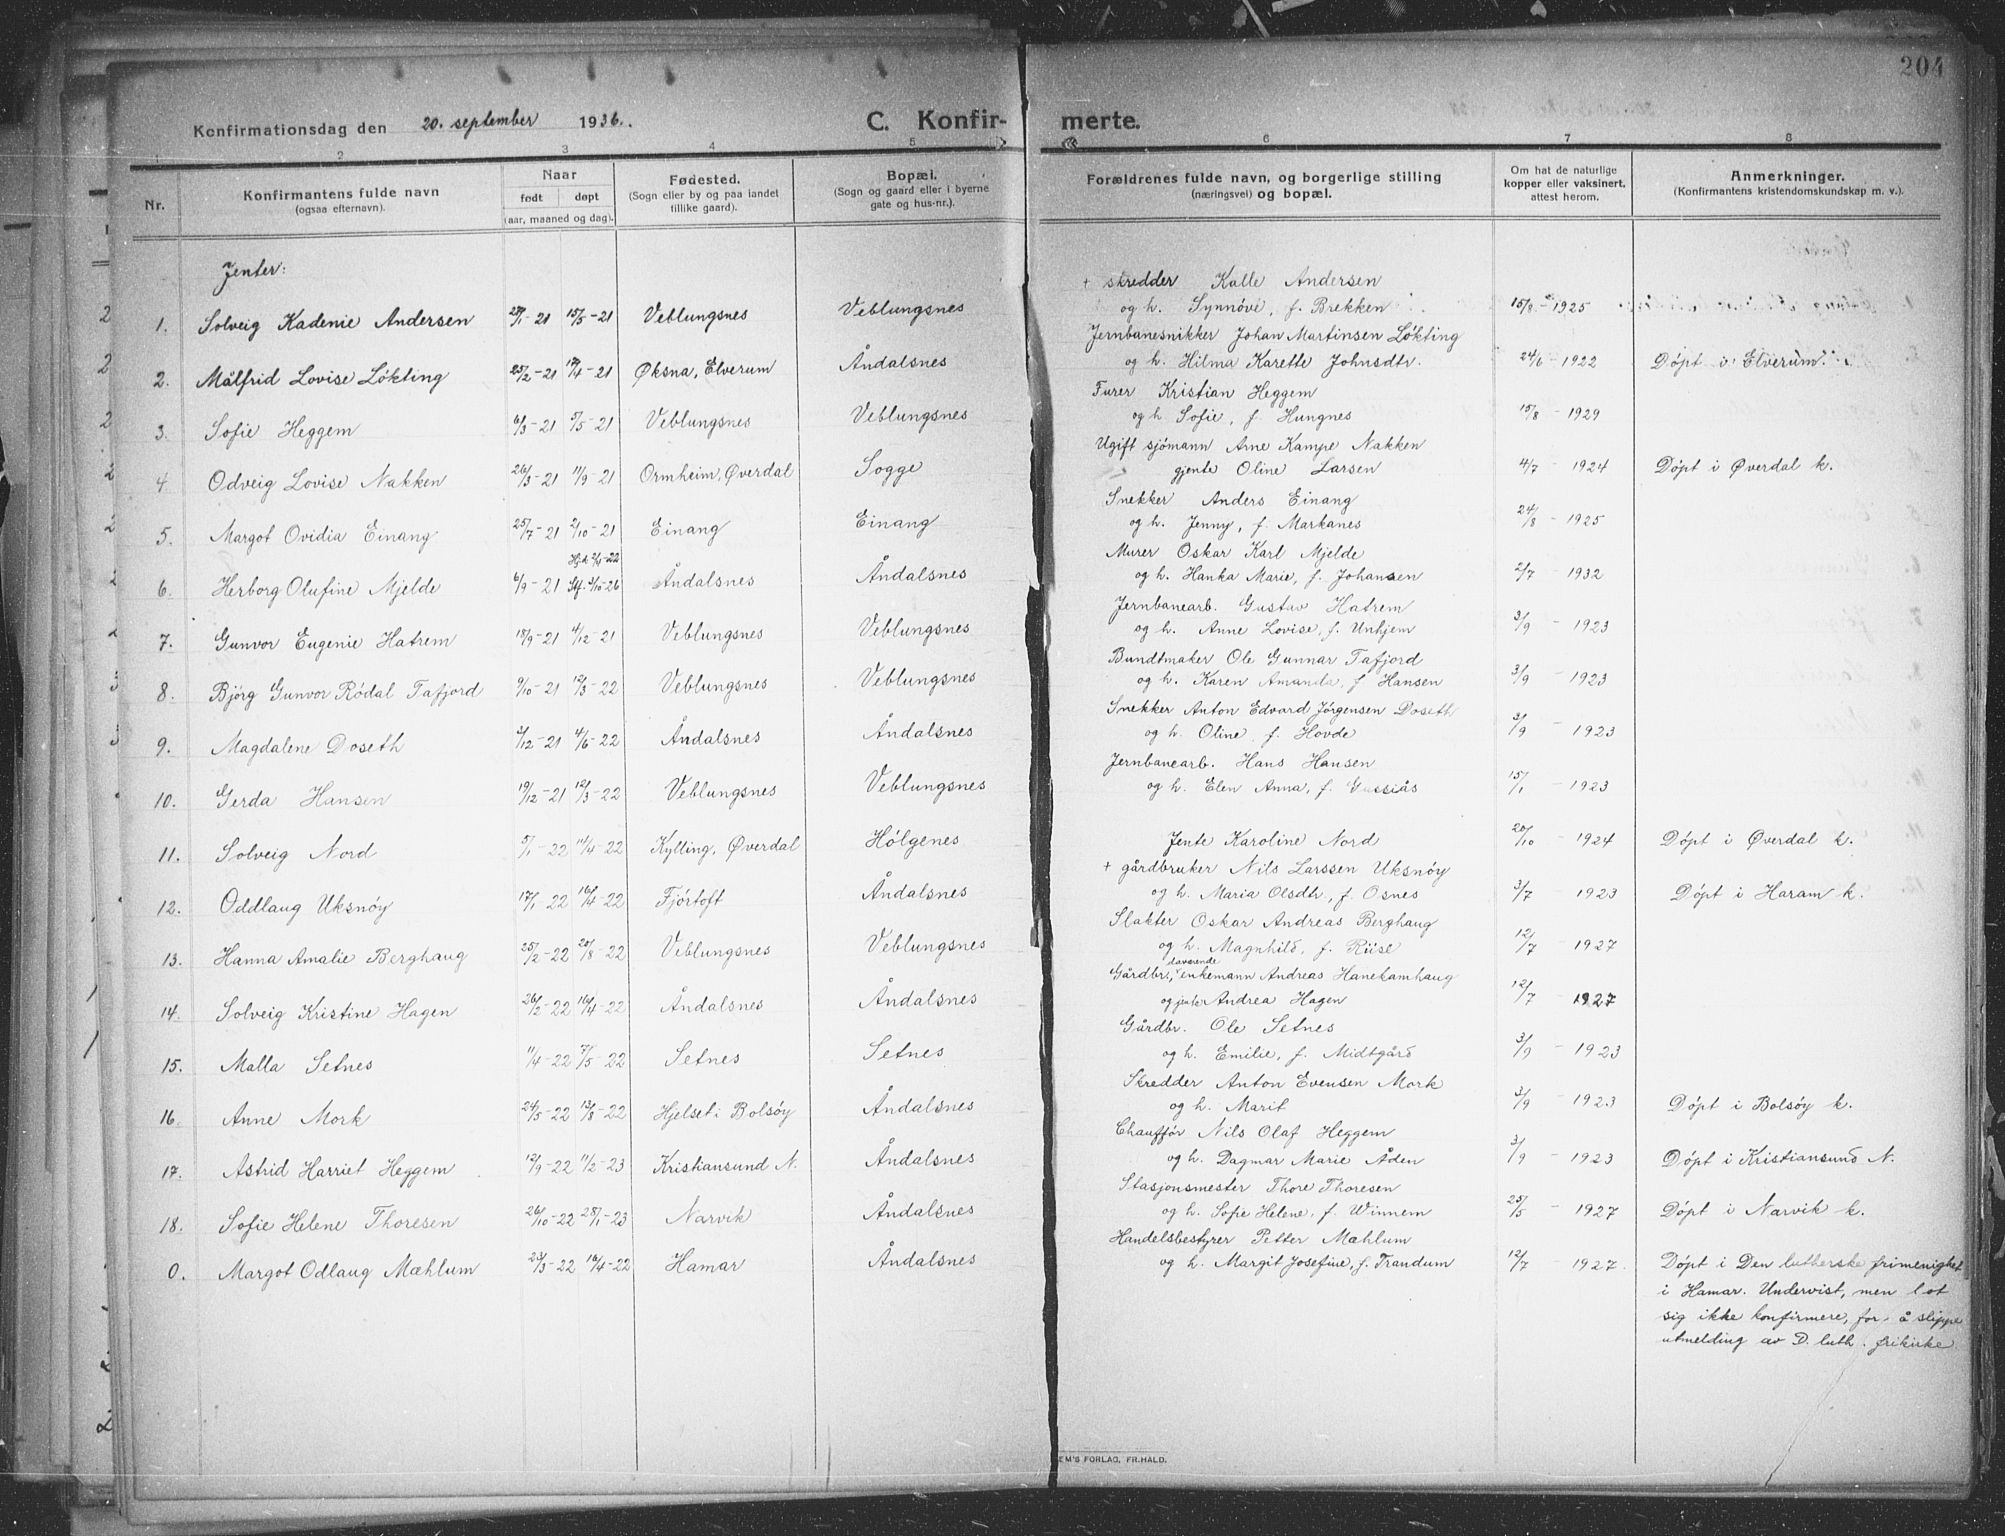 204
Konfirmationsdag den 20. september 1936.
C. Konfir-
merte.
1 2 3 4 5 6 7 8
Nr.
Konfirmantens fulde navn
(ogsaa efternavn).
Naar
født døpt
(aar, maaned og dag).
Fødested.
(Sogn eller by og paa landet
tillike gaard).
Bopæl.
(Sogn og gaard eller i byerne
gate og hus-nr.).
Forældrenes fulde navn, og borgerlige stilling
(næringsvei) og bopæl.
Om hat de naturlige
kopper eller vaksinert,
attest herom.
Anmerkninger.
(Konfirmantens kristendomskundskap m. v.).
Jenter:
+ skredder Kalle Andersen
1. Solveig Kadenie Andersen 15/5-21 Veblungsnes Veblungsnes og h. Synnöve, f. Brekken 15/8 - 1925
Jernbanesnikker Johan Martinsen Lökting
2. Målfrid Lovise Lökting 25/2-21 17/4-21 Øksna, Elverum Åndalsnes og h. Hilma Karette Johnsdtr. 24/6 - 1922 Döpt i Elverum.
Furer Kristian Heggem
3. Sofie Heggem 6/3-21 5/5-21 Veblungsnes Veblungsnes og h. Sofie, f. Hungnes 15/8 - 1929
Ugift sjömann Arne Kampe Nakken
4. Odveig Lovise Nakken 26/3-21 11/9-21 Ormheim, Øverdal Sogge gjente Oline Larsen 4/7 - 1924 Döpt i Øverdal k.
Snekker Anders Einang
5. Margot Ovidia Einang 25/7-21 2/10-21 Einang Einang og h. Jenny, f. Markanes 24/8 - 1925
Murer Oskar Karl Mjelde
6. Herborg Olufine Mjelde 6/9-21 Åndalsnes Åndalsnes og h. Hanka Marie, f. Johansen 2/7 - 1932
Jernbanearb. Gustav Hatrem
7. Gunvor Eugenie Hatrem 18/9-21 4/12-21 Veblungsnes Veblungsnes og h. Anne Lovise, f. Unhjem 3/9 - 1923
Bundtmaker Ole Gunnar Tafjord
8. Björg Gunvor Rödal Tafjord 9/10-21 12/3-22 Veblungsnes Veblungsnes og h. Karen Amanda, f. Hansen 3/9 - 1923
Snekker Anton Edvard Jörgensen Doseth
9. Magdalene Doseth 4/6-22 Åndalsnes Åndalsnes og h. Oline, f. Hovde 3/9 - 1923
Jernbanearb. Hans Hansen
10. Gerda Hansen 19/12-21 12/3-22 Veblungsnes Veblungsnes og h. Elen Anna, f. Gussiås 15/1 - 1923
11. Solveig Nord 5/1-22 17/4-22 Kylling, Øverdal Hölgenes Jente Karoline Nord 20/10 - 1924 Döpt i Øverdal k.
+ gårdbruker Nils Larssen Uksnöy
12. Oddlaug Uksnöy 17/1-22 16/4-22 Fjörtoft Åndalsnes og h. Maria Olsdtr., f. Osnes 3/7 - 1923 Döpt i Haram k.
Slakter Oskar Andreas Berghaug
13. Hanna Amalie Berghaug 25/2-22 20/8-22 Veblungsnes Veblungsnes og h. Magnhild, f. Riise 12/7 - 1927
Gårdbr., enkemann Andreas Hanekamhaug
14. Solveig Kristine Hagen 26/2-22 16/4-22 Åndalsnes Åndalsnes og jente Andrea Hagen 12/7 - 1927
Gårdbr. Ole Setnes
15. Malla Setnes 11/4-22 7/5-22 Setnes Setnes og h. Emilie, f. Midtgård 3/9 - 1923
Skredder Anton Evensen Mork
16. Anne Mork 24/5-22 13/8-22 Hjelset i Bolsöy Åndalsnes og h. Marit 3/9 - 1923 Döpt i Bolsöy k.
Chaufför Nils Olaf Heggem
17. Astrid Harriet Heggem 12/9-22 11/2-23 Kristiansund N. Åndalsnes og h. Dagmar Marie Åden 3/9 - 1923 Döpt i Kristiansund N.
Stasjonsmester Thore Thoresen
18. Sofie Helene Thoresen 26/10-22 28/1-23 Narvik Åndalsnes og h. Sofie Helene, f. Winnem 25/5 - 1927 Döpt i Narvik k.
Handelsbestyrer Petter Mæhlum
0. Margot Odlaug Mæhlum 23/3-22 16/4-22 Hamar Åndalsnes og h. Margit Josefine, f. Trandum 12/7 - 1927. Döpt i Den lutherske frimenighet
i Hamar. Undervist, men lot
sig ikke konfirmere, for å slippe
utmelding av D. luth. frikirke
EM'S FORLAG, FR. HALD.